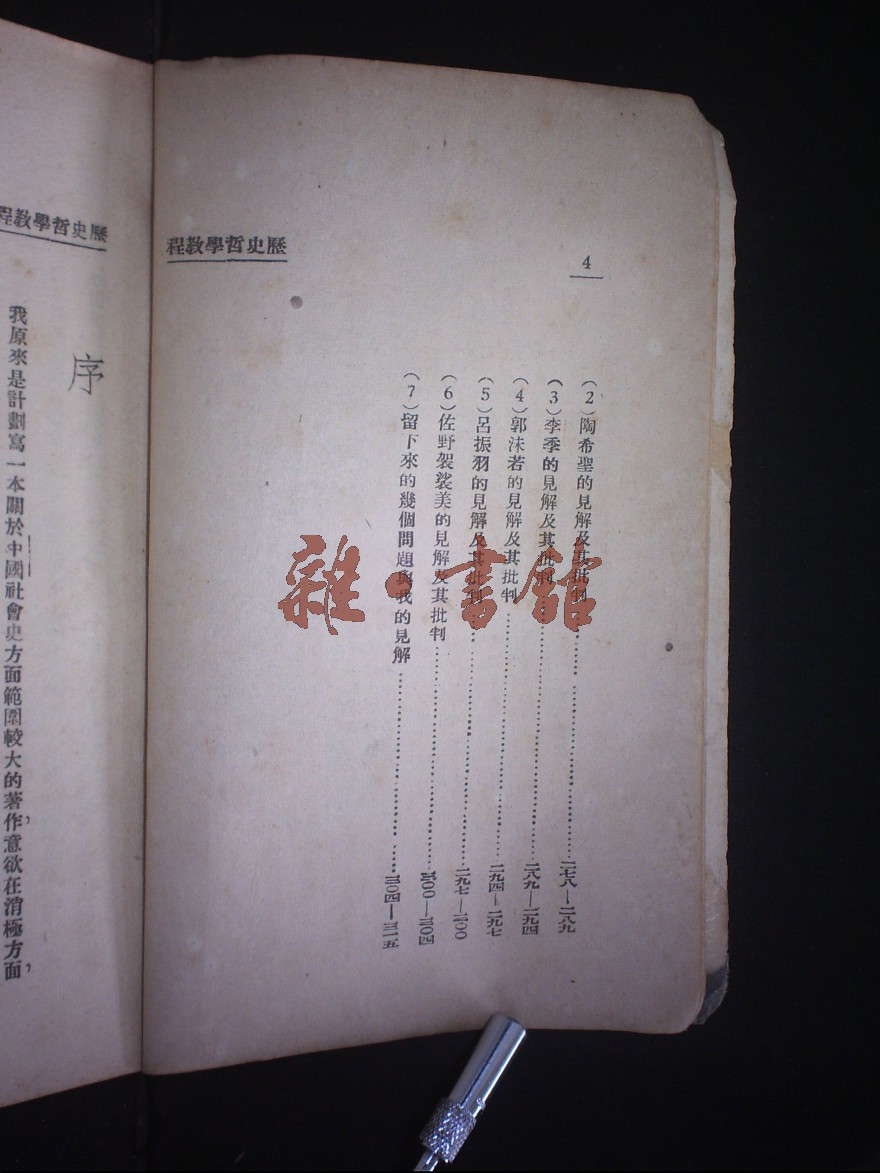 4
歷史哲學教程
（2）陶希聖的見解及其批判……二七八—二八九
（3）李季的見解及其批判……二八九—二九四
（4）郭沫若的見解及其批判……二九四—二九七
（5）呂振羽的見解及其批判……二九七—三00
（6）佐野袈裟美的見解及其批判……三00—三0四
（7）留下來的幾個問題與我的見解……三0四—三一五
歷史哲學教程
序
我原來是計劃寫一本關於中國社會史方面範圍較大的著作，意欲在消極方面，
雜·書館